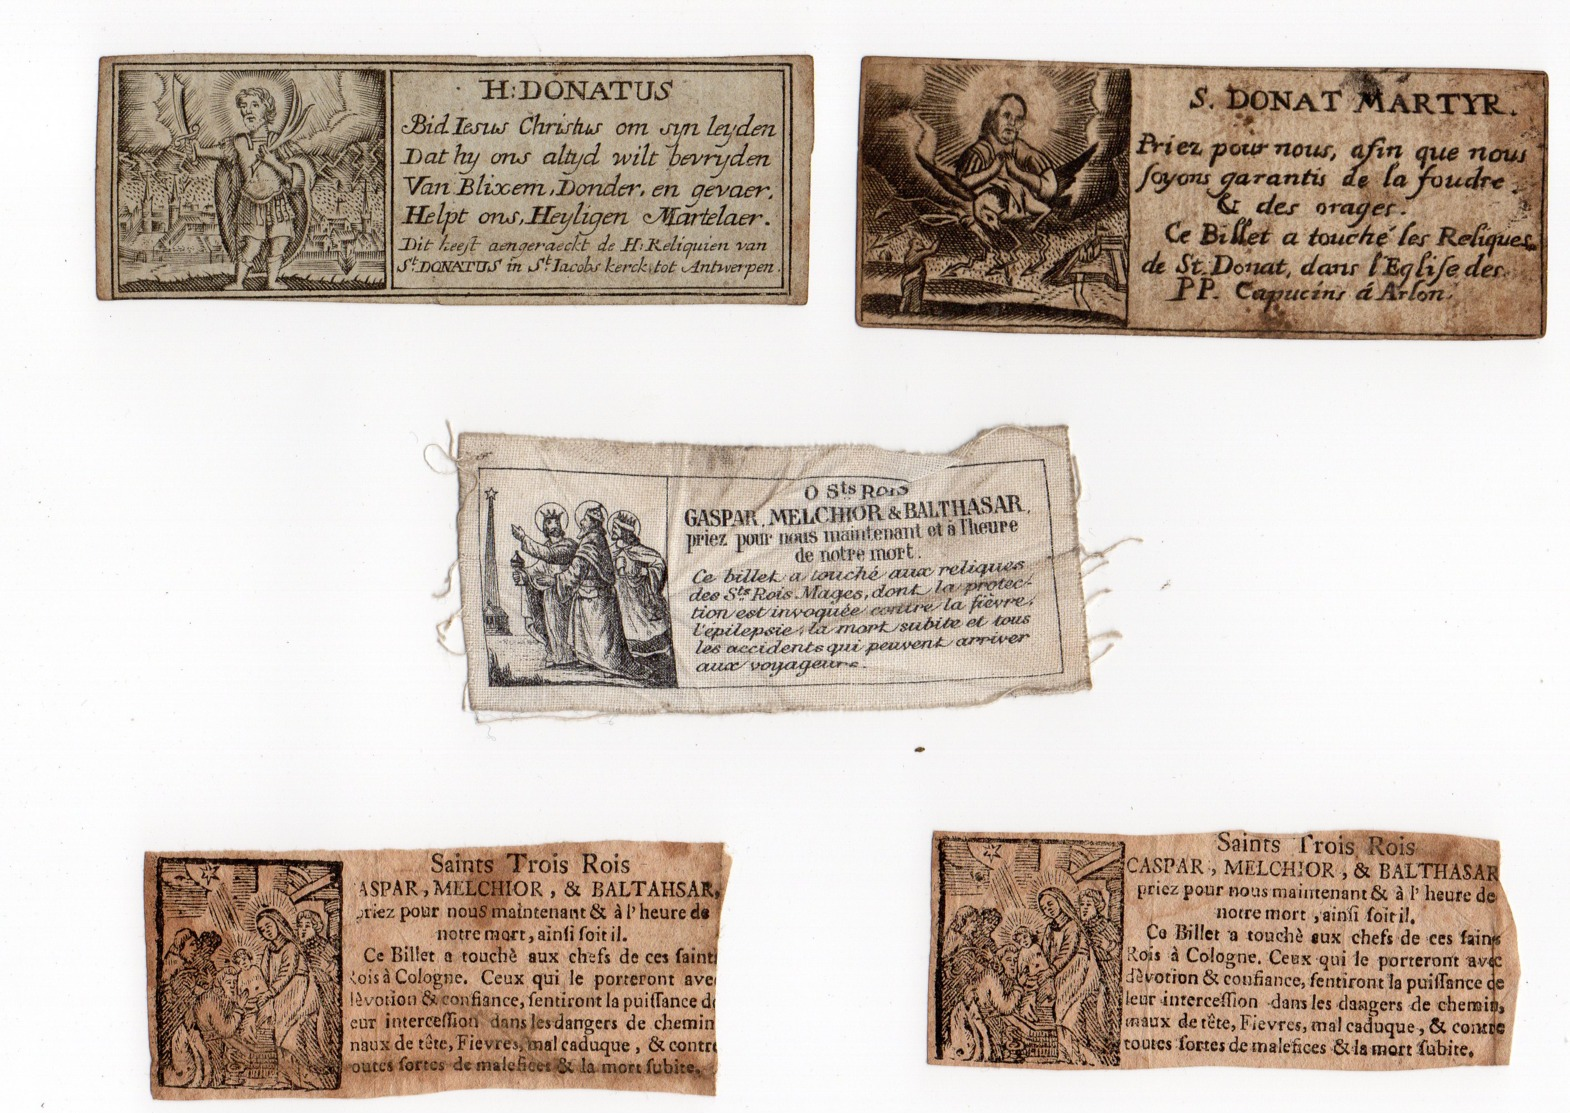 H: DONATUS
Bid Iesus Christus om syn leyden
Dat hy ons altyd wilt bevryden
Van Blixem, Donder, en gevaer,
Helpt ons, Heyligen Martelaer.
Dit heeft aengeraeckt de H: Reliquien van
St. DONATUS in St Iacobs kerck tot Antwerpen.
S. DONAT MARTYR.
Priez pour nous, afin que nous
soyons garantis de la foudre
& des orages.
Ce Billet a touché les Reliques
de St. Donat, dans l'Eglise des
PP. Capucins á Arlon.
O Sts ROIS
GASPAR, MELCHIOR & BALTHASAR,
priez pour nous maintenant et à l'heure
de notre mort.
Ce billet a touché aux reliques
des Sts Rois Mages, dont la protec-
tion est invoquée contre la fièvre,
l'épilepsie, la mort subite et tous
les accidents qui peuvent arriver
aux voyageurs.
Saints Trois Rois
ASPAR, MELCHIOR, & BALTAHSAR,
priez pour nous maintenant & à l'heure de
notre mort, ainſi ſoit il.
Ce Billet a touchè aux chefs de ces ſaint
Rois à Cologne. Ceux qui le porteront ave
dèvotion & confiance, ſentiront la puiſſance d
eur interceſſion dans les dangers de chemin
naux de tête, Fievres, mal caduque, & contre
outes ſortes de malefices & la mort ſubite.
Saints Trois Rois
CASPAR, MELCHIOR, & BALTHASAR
priez pour nous maintenant & à l'heure de
notre mort, ainſi ſoit il.
Ce Billet a touchè aux chefs de ces ſaints
Rois à Cologne. Ceux qui le porteront avec
dèvotion & confiance, ſentiront la puiſſance de
leur interceſſion dans les dangers de chemin,
maux de tête, Fievres, mal caduque, & contre
toutes ſortes de malefices & la mort ſubite.